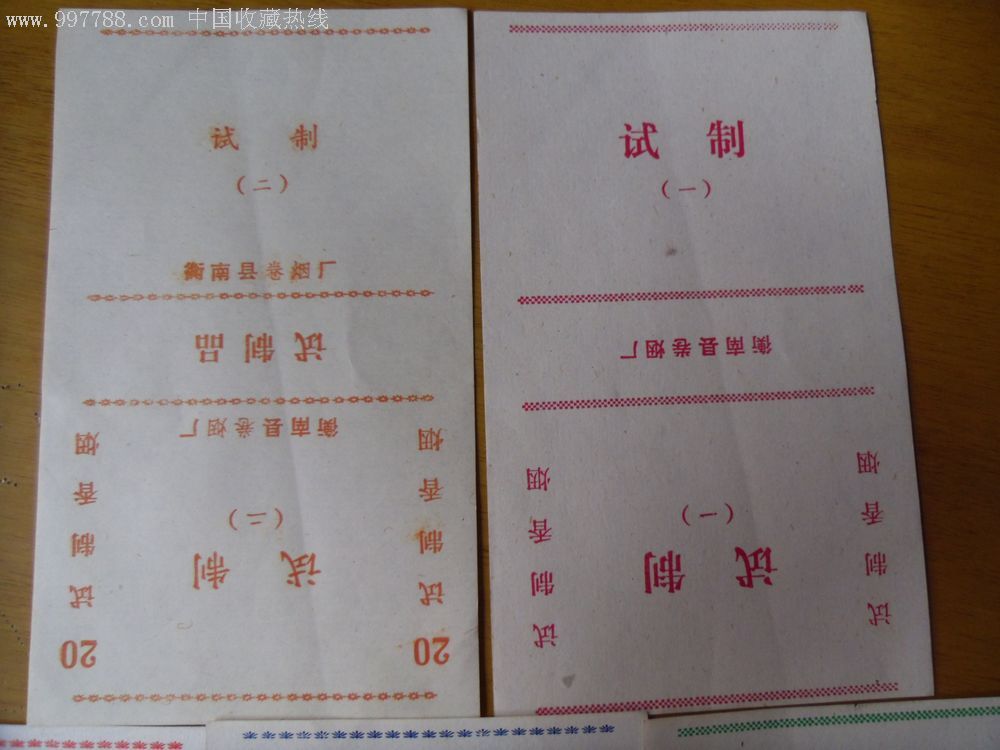 www.997788.com 中国收藏热线
试 制
（二）
衡南县卷烟厂
试制品
衡南县卷烟厂
（二）
试 制
试制香烟
试制香烟
20
20
试 制
（一）
衡南县卷烟厂
（一）
试 制
试制香烟
试制香烟